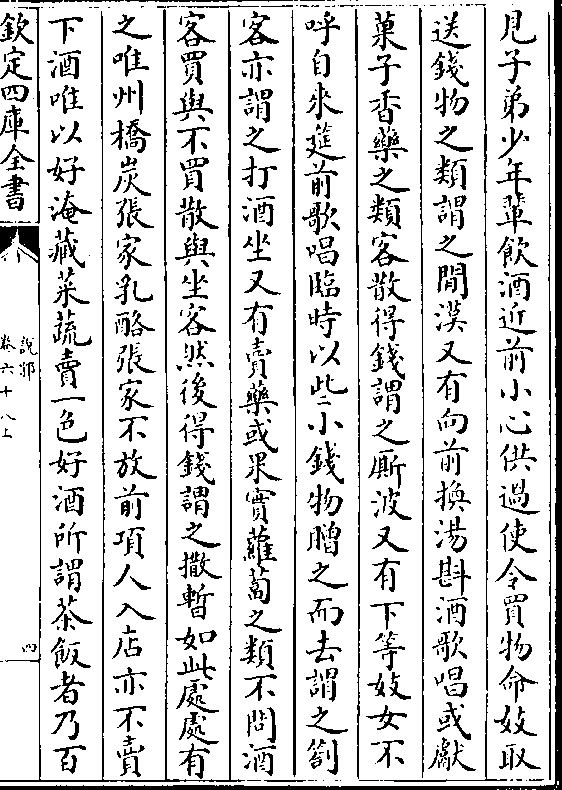 見子弟少年輩飲酒近前小心供過使令買物命妓取
送錢物之類謂之閒漢又有向前換湯斟酒歌唱或獻
菓子香藥之類客散得錢謂之厮波又有下等妓女不
呼自來筵前歌唱臨時以些小錢物贈之而去謂之劄
客亦謂之打酒坐又有賣藥或果實蘿蔔之類不問酒
客買與不買散與坐客然後得錢謂之撒暫如此處處有
之唯州橋炭張家乳酪張家不放前項人入店亦不賣
下酒唯以好淹藏菜蔬賣一色好酒所謂茶飯者乃百
欽定四庫全書
說郛
卷六十八上
四